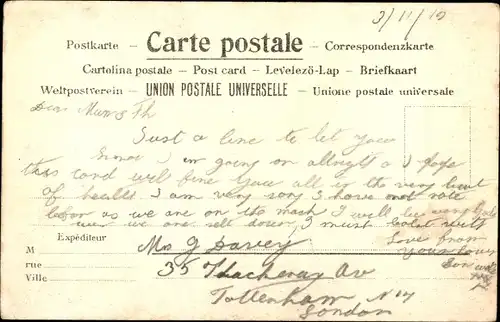 3/11/10
Postkarte – Carte postale – Correspondenzkarte
Cartolina postale – Post card – Levelező-Lap – Briefkaart
Weltpostverein – UNION POSTALE UNIVERSELLE – Unione postale universale
Dear Mum & Fh
Just a line to let you
know I am going on allright & I hope
this card will fine you all in the very best
of health I am very sory I have not rote
befor as we are on the mach I will
wen we are sell down, I must
Love from
your loving
Son
Expéditeur
M Mrs J Davey
rue 35 Thackeray Av
Ville Tottenham N 17
London